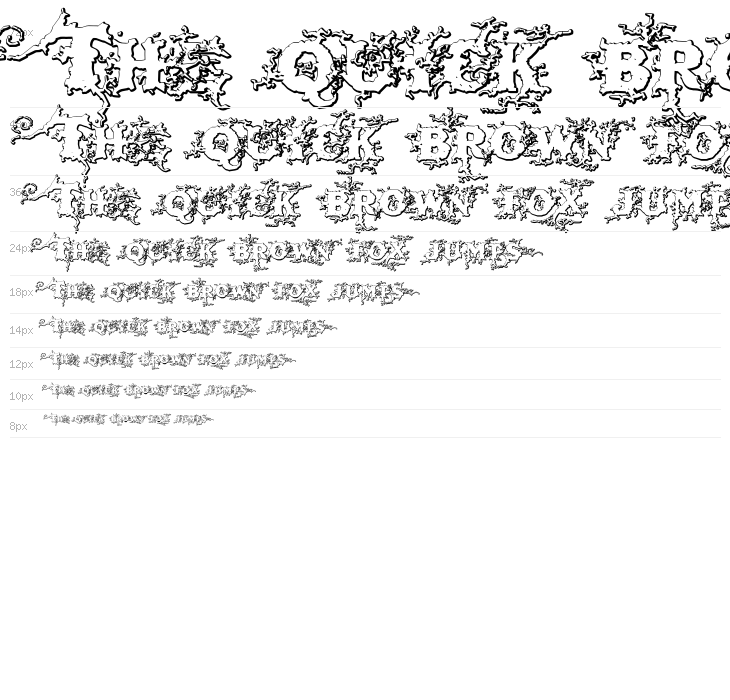 THE QUICK BRO
THE QUICK BROWN FOX
36px THE QUICK BROWN FOX JUMPS
24px THE QUICK BROWN FOX JUMPS
18px THE QUICK BROWN FOX JUMPS
14px THE QUICK BROWN FOX JUMPS
12px THE QUICK BROWN FOX JUMPS
10px THE QUICK BROWN FOX JUMPS
8px THE QUICK BROWN FOX JUMPS